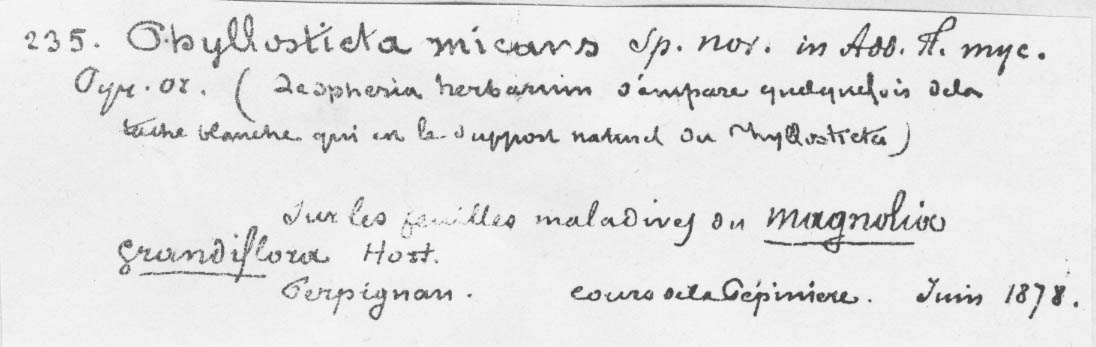 235. Phyllosticta micans Sp. nov. in Add. fl. myc.
Pyr. or. ( Le spheria herbarum s'empare quelquefois de la
tache blanche qui est le support naturel du Phyllosticta)
Sur les feuilles maladives du Magnolia
grandiflora Hort.
Perpignan. cours de la Pépiniere. Juin 1878.